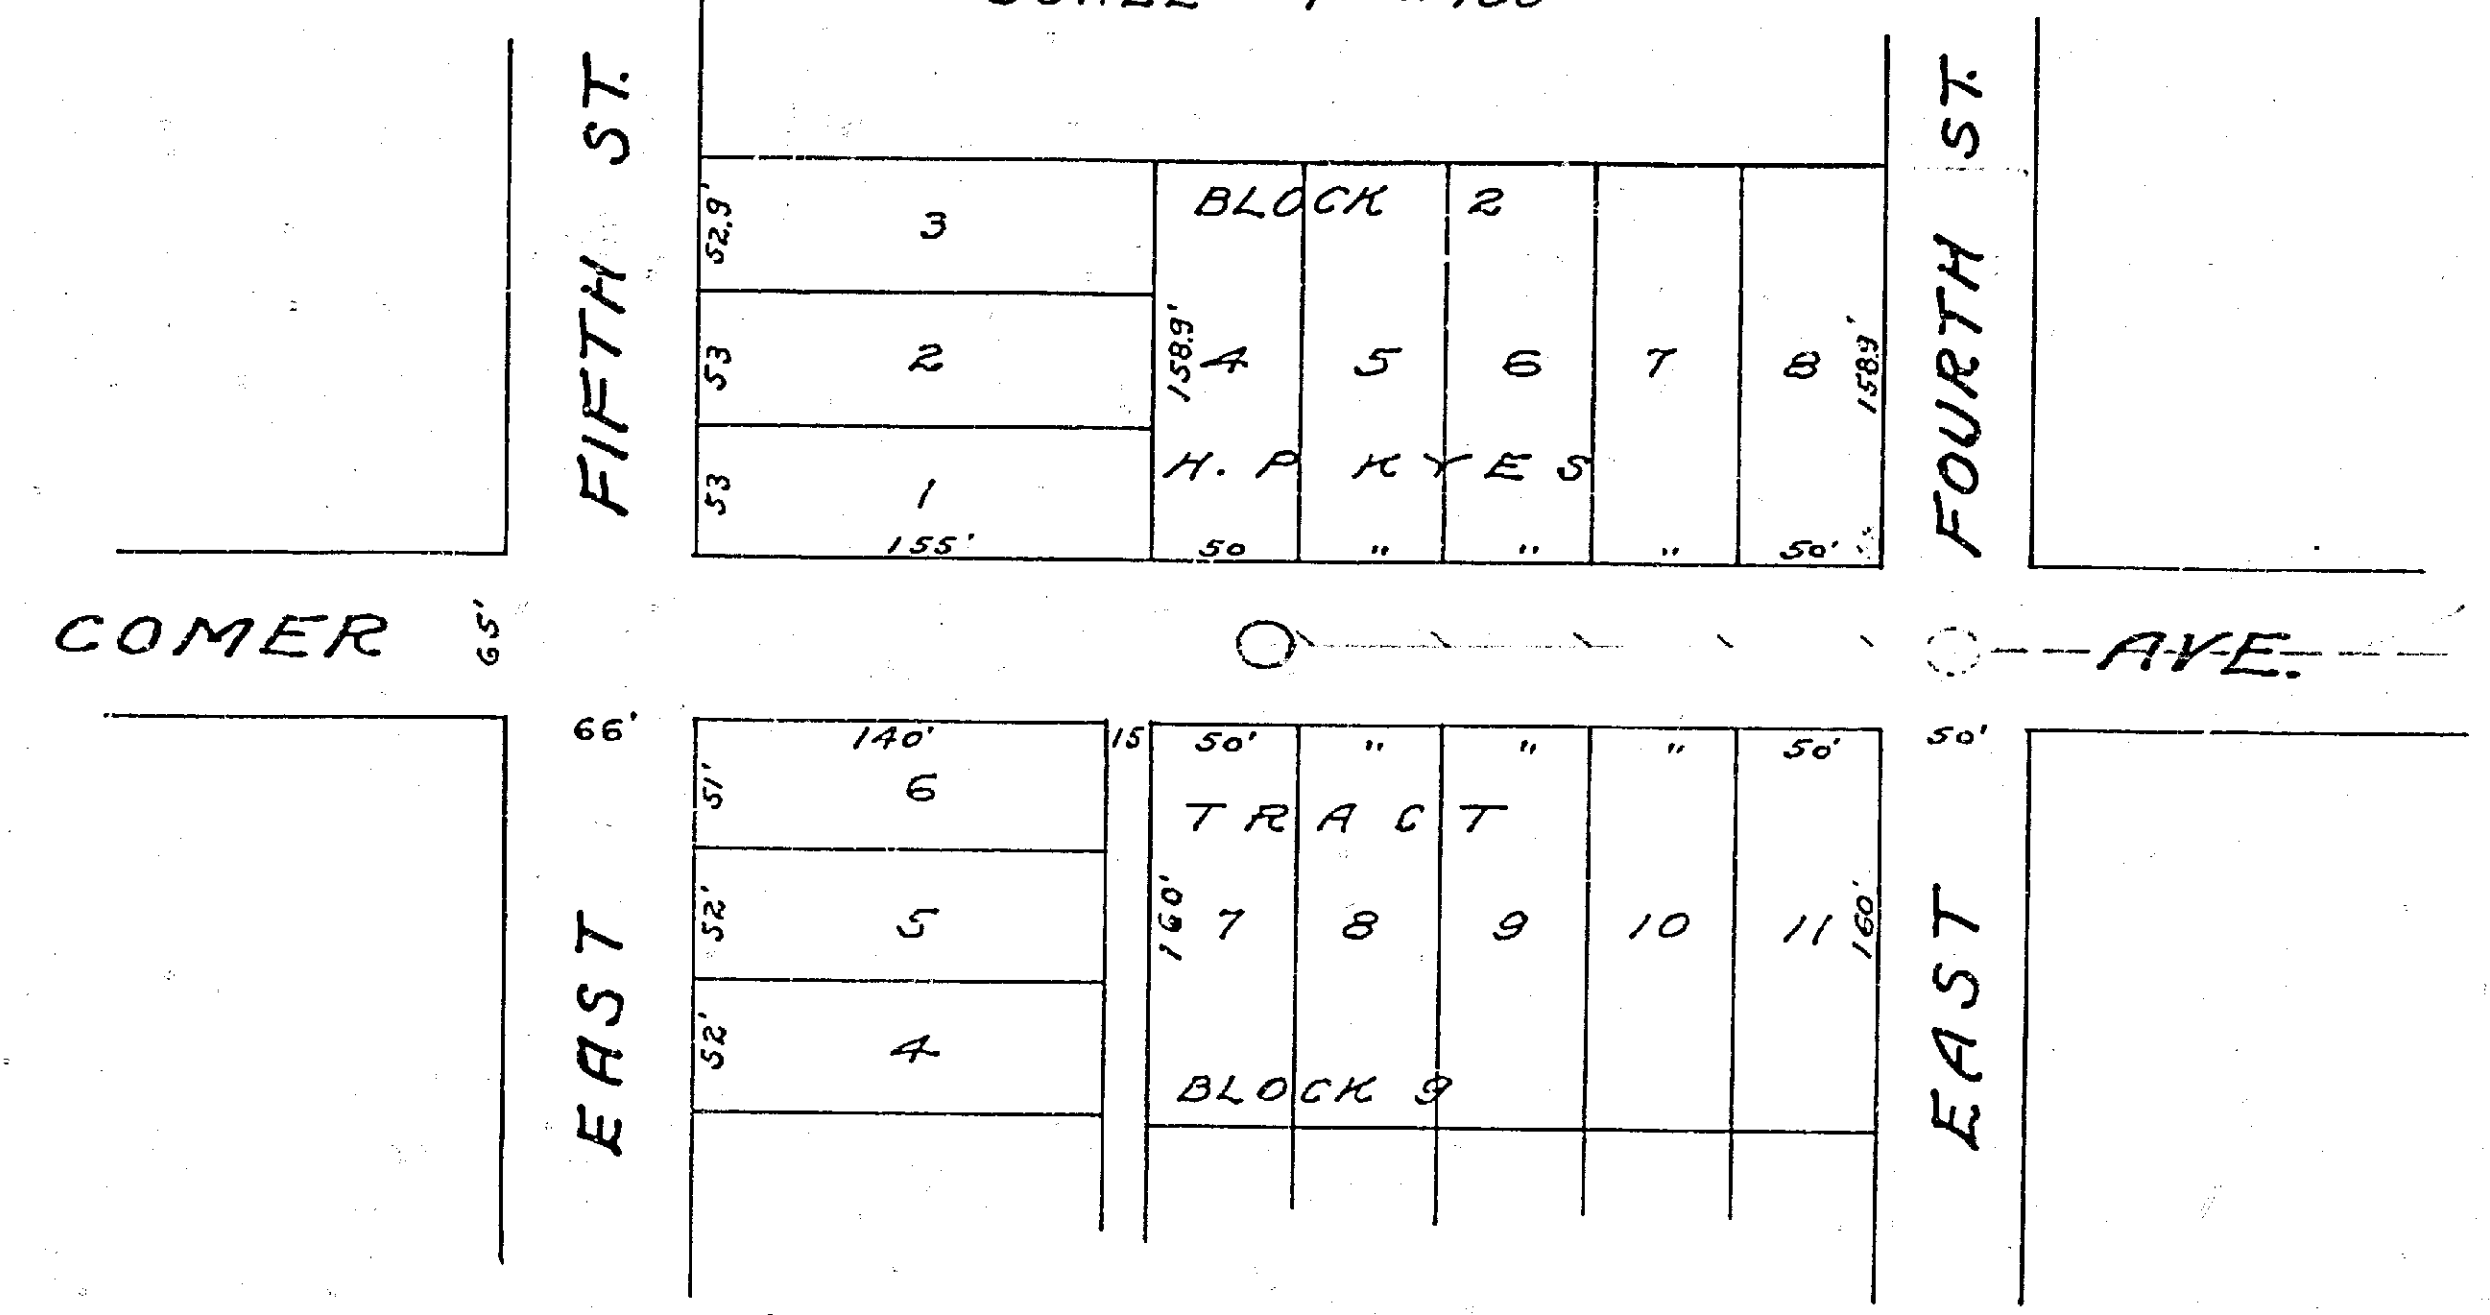 FIFTH ST.
FOURTH ST.
BLOCK 2
52.9' 3
53 2
158.9' 4 5 6 7 8 158.9'
H. P KYES
53 1
155' 50 " " " 50'
COMER 65' AVE.
66' 140' 15 50' " " " 50' 50'
51' 6
TRACT
52' 5
160' 7 8 9 10 11 160'
52' 4
BLOCK 9
EAST
EAST